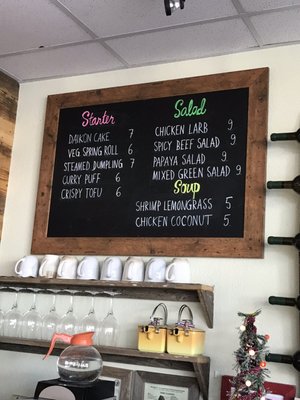 Starter
DAIKON CAKE 7
VEG SPRING ROLL 6
STEAMED DUMPLING 7
CURRY PUFF 6
CRISPY TOFU 6
Salad
CHICKEN LARB 9
SPICY BEEF SALAD 9
PAPAYA SALAD 9
MIXED GREEN SALAD 9
Soup
SHRIMP LEMONGRASS 5
CHICKEN COCONUT 5